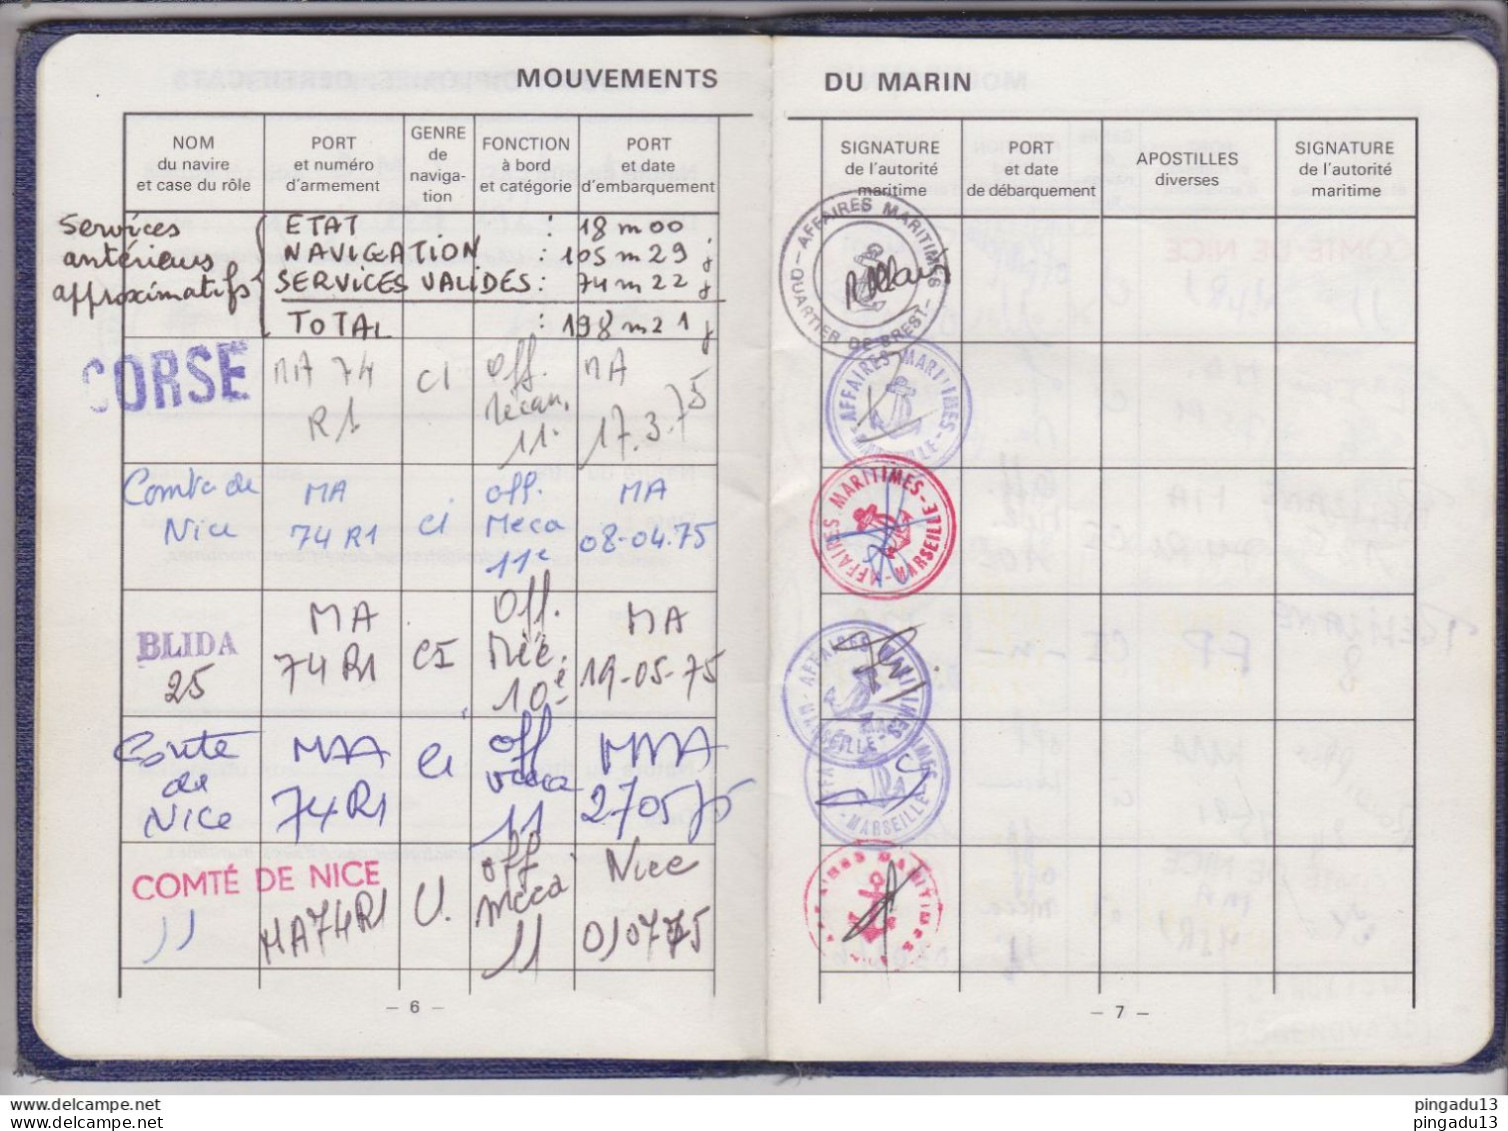 MOUVEMENTS DU MARIN
NOM du navire et case du rôle
PORT et numéro d'armement
GENRE de naviga-tion
FONCTION à bord et catégorie
PORT et date d'embarquement
SIGNATURE de l'autorité maritime
PORT et date de débarquement
APOSTILLES diverses
SIGNATURE de l'autorité maritime
Services antérieurs approximatifs
ETAT : 18 m 00
NAVIGATION : 105 m 29 j
SERVICES VALIDES : 74 m 22 j
TOTAL : 198 m 21 j
AFFAIRES MARITIMES - QUARTIER DE BREST -
CORSE
MA 74 R1
CI
Off. Mécan. 11.
MA 17.3.75
AFFAIRES MARITIMES - MARSEILLE -
Comte de Nice
MA 74 R1
CI
Off. Meca 11e
MA 08-04.75
AFFAIRES MARITIMES - MARSEILLE -
BLIDA 25
MA 74 R1
CI
Off. Méc. 10e
MA 19-05-75
AFFAIRES MARITIMES - MARSEILLE -
Comte de Nice
MAA 74R1
CI
off meca 11
MAA 270575
AFFAIRES MARITIMES - MARSEILLE -
COMTÉ DE NICE
11
MA74R1
CI.
off meca 11
Nice 010775
- 6 -
- 7 -
www.delcampe.net
www.delcampe.net
pingadu13
pingadu13